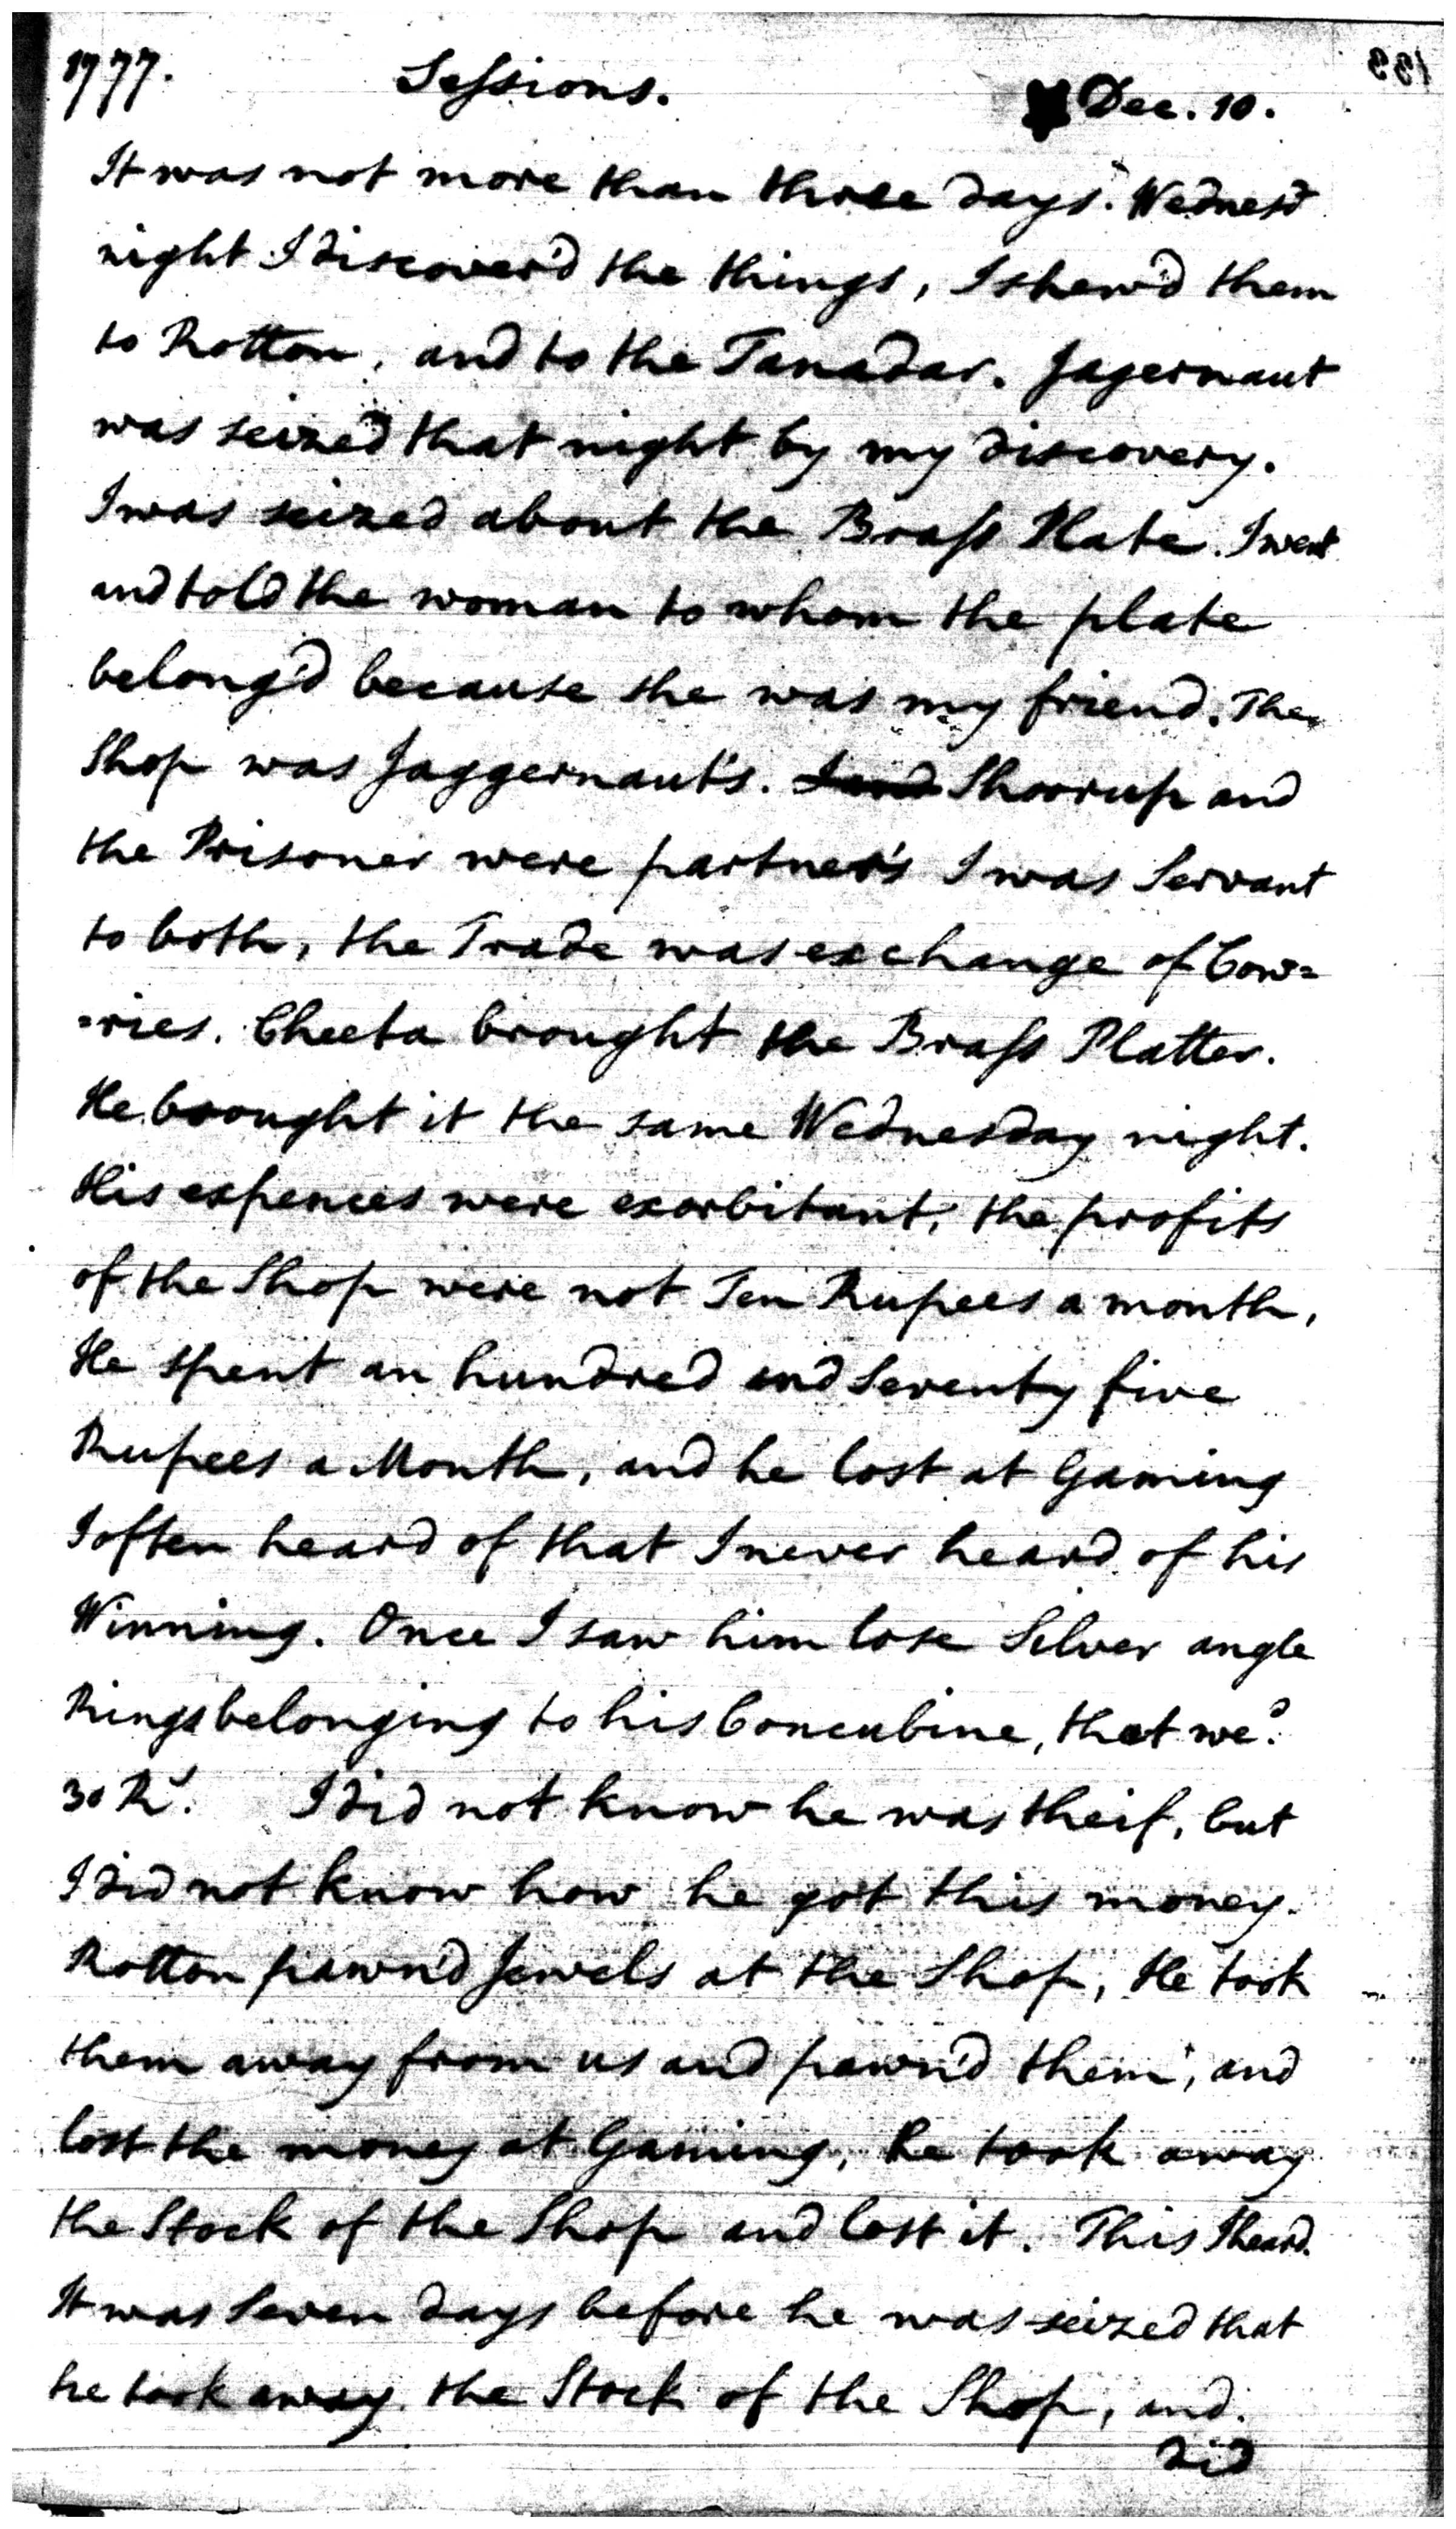 1777. Sessions. Dec. 10.
It was not more than three days. Wednesd
night I discover'd the things, I shew'd them
to Rotton, and to the Tanadar. Jagernaut
was seized that night by my discovery.
I was seized about the Brass Plate. I went
and told the woman to whom the plate
belong'd because she was my friend. The
Shop was Jaggernaut's. Shoorup and
the Prisoner were partner's I was Servant
to both, the Trade was exchange of Cow=
=ries. Cheeta brought the Brass Platter.
He brought it the same Wednesday night.
His expences were exorbitant, the profits
of the Shop were not Ten Rupees a month,
He spent an hundred and Seventy five
Rupees a Month, and he lost at Gaming
I often heard of that I never heard of his
Winning. Once I saw him lose Silver angle
Rings belonging to his Concubine, that we.d
30 Rs. I did not know he was theif, but
I did not know how he got this money.
Rotton pawn'd Jewels at the Shop, He took
them away from us and pawn'd them, and
lost the money at Gaming, he took away
the Stock of the Shop and lost it. This I heard.
It was Seven days before he was seized that
he took away the Stock of the Shop, and
did